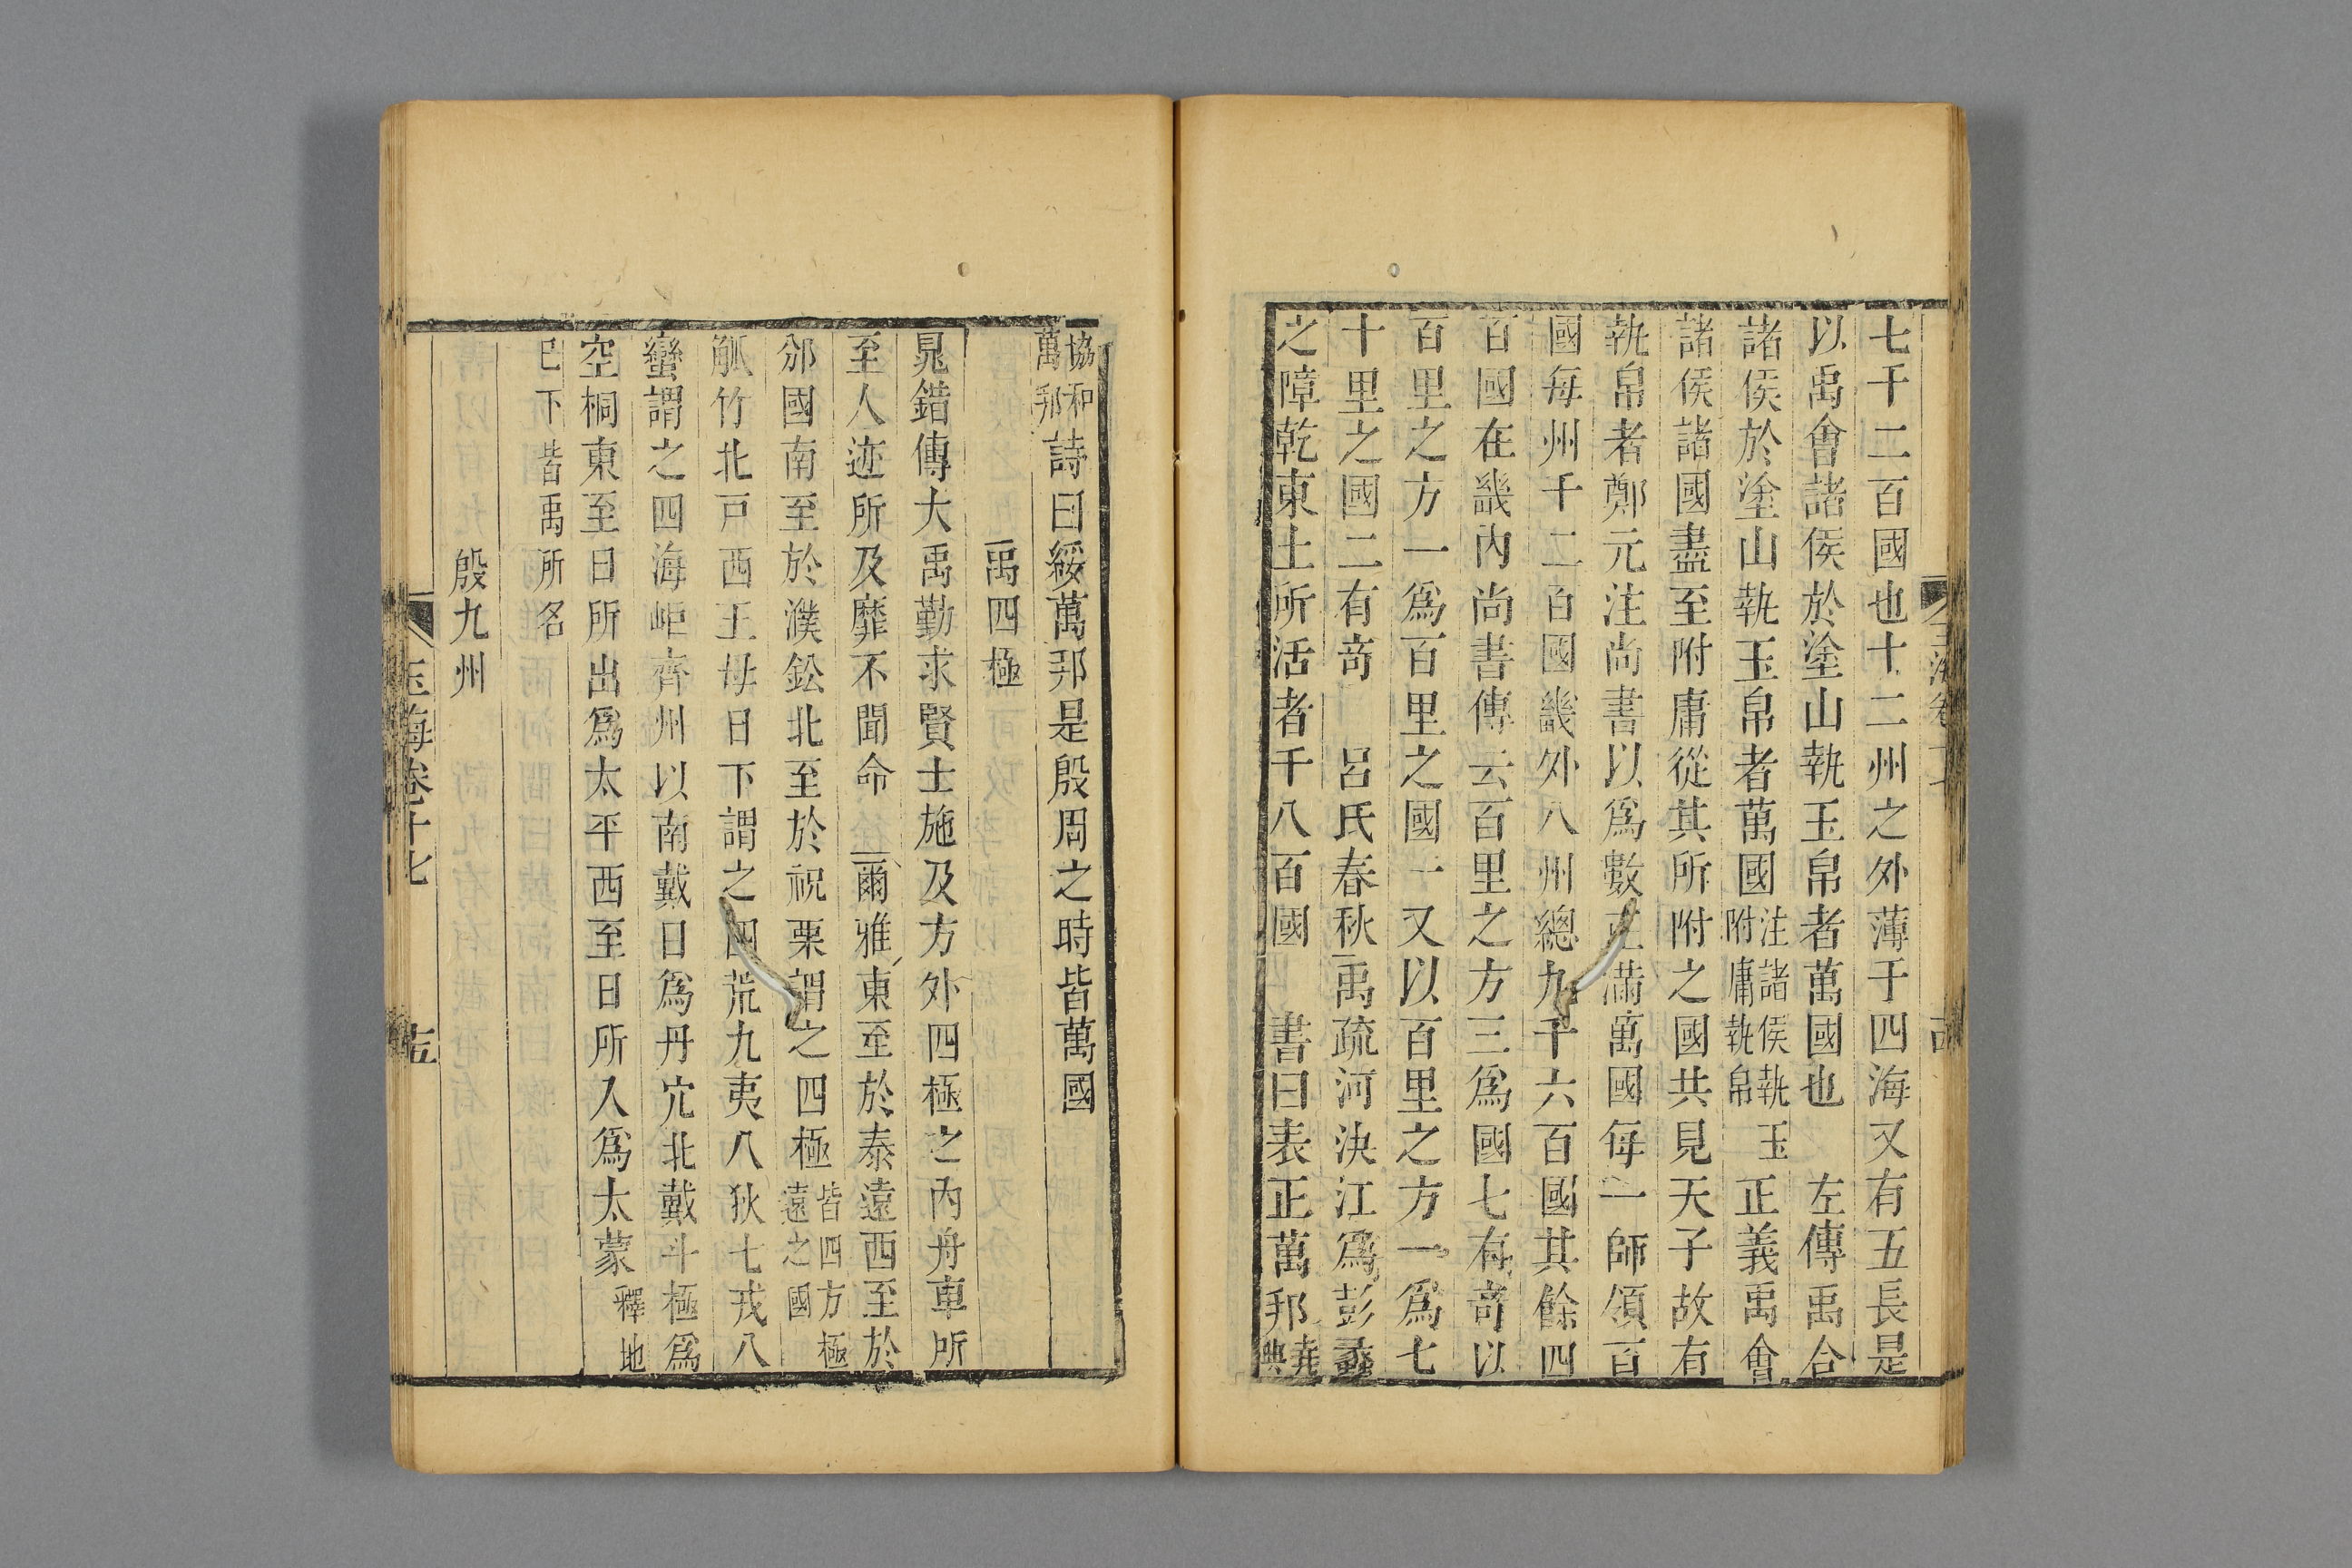 七千二百國也十二州之外薄于四海又有五長是
以禹會諸侯於塗山執玉帛者萬國也　左傳禹合
諸侯於塗山執玉帛者萬國注諸侯執玉附庸執帛正義禹會
諸侯諸國盡至附庸從其所附之國共見天子故有
執帛者鄭元注尚書以爲數正滿萬國每一師領百
國每州千二百國畿外八州總九千六百國其餘四
百國在畿內尚書傳云百里之方三爲國七有奇以
百里之方一爲百里之國一又以百里之方一爲七
十里之國二有奇　呂氏春秋禹疏河決江爲彭蠡
之障乾東土所活者千八百國　書曰表正萬邦堯典
協和萬邦詩曰綏萬邦是殷周之時皆萬國
禹四極
晁錯傳大禹勤求賢士施及方外四極之內舟車所
至人迹所及靡不聞命　爾雅東至於泰遠西至於
邠國南至於濮鈆北至於祝栗謂之四極皆四方極遠之國
觚竹北戸西王母日下謂之四荒九夷八狄七戎八
蠻謂之四海岠齊州以南戴日爲丹穴北戴斗極爲
空桐東至日所出爲太平西至日所入爲太蒙釋地
已下皆禹所名
殷九州
玉海卷十七